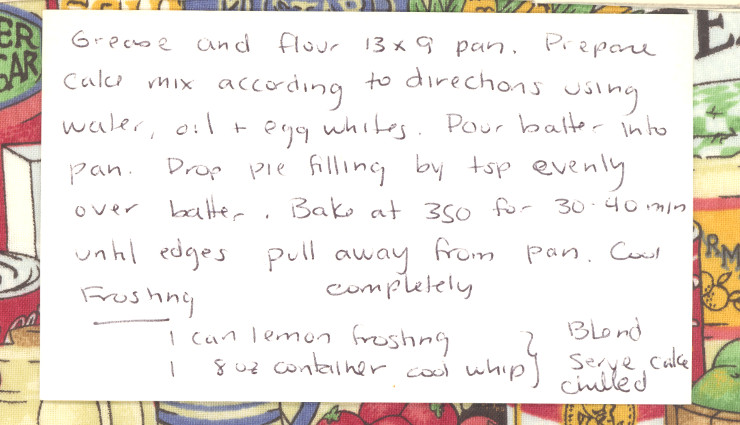 Grease and flour 13 x 9 pan. Prepare
cake mix according to directions using
water, oil + egg whites. Pour batter into
pan. Drop pie filling by tsp evenly
over batter. Bake at 350 for 30-40 min
until edges pull away from pan. Cool
completely
Frosting
1 can lemon frosting } Blend
1 8 oz container cool whip } Serve cake
chilled
ER
GAR
E
RM